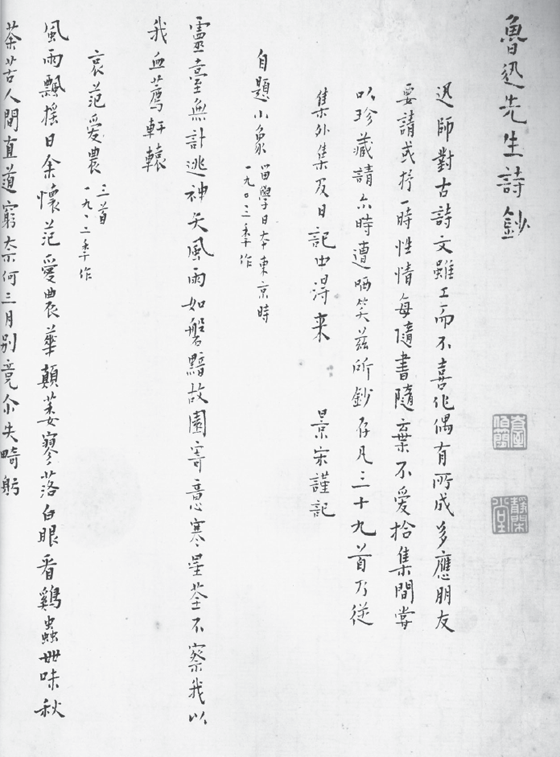 魯迅先生詩鈔
迅師對古詩文雖工而不喜作偶有所成多應朋友
要請或抒一時性情每隨書隨棄不愛拾集間嘗
以珍藏請亦時遭哂笑茲所鈔存凡三十九首乃從
集外集及日記中得来 景宋謹記
自題小象 留學日本東京時
一九〇三年作
靈臺無計逃神矢風雨如磐黯故園寄意寒星荃不察我以
我血薦軒轅
哀范愛農 三首
一九一二年作
風雨飄搖日余懷范愛農華顛萎寥落白眼看鷄蟲世味秋
荼苦人間直道窮奈何三月別竟尔失畸躬